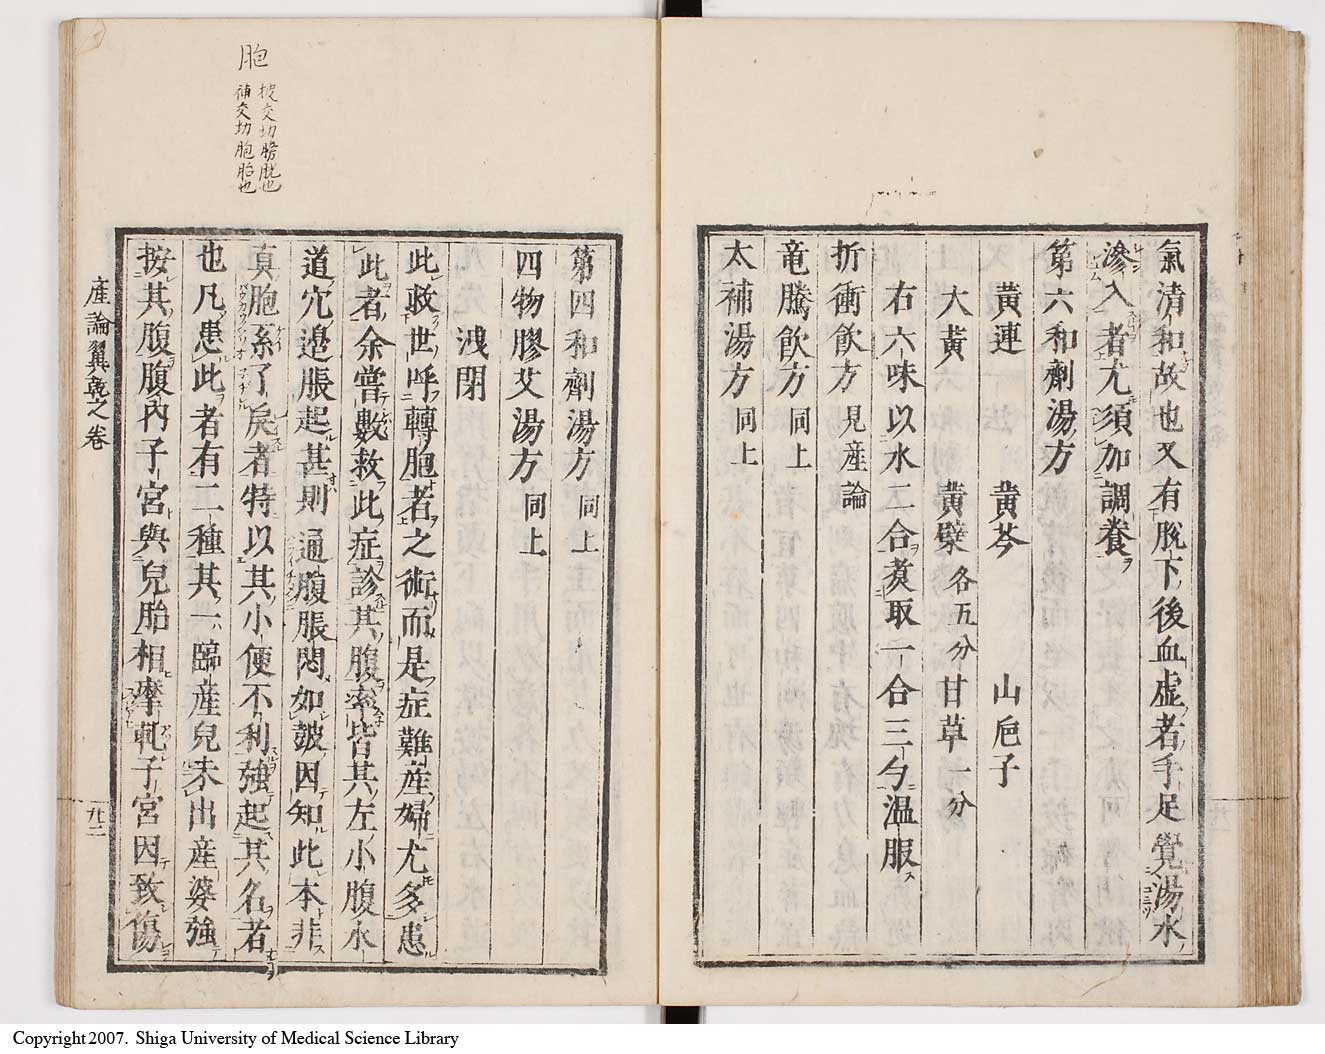 氣清和故也又有脫下後血虛者手足覺湯水
滲入者尤須加調養
第六和劑湯方
黄連　黄芩　山巵子
大黄　黄檗各五分　甘草一分
右六味以水二合煮取一合三勺温服
折衝飲方見産論
竜騰飲方同上
太補湯方同上
第四和劑湯方同上
四物膠艾湯方同上
洩閉
此救世呼轉胞者之術而是症難産婦尤多患
此者余嘗數救此症診其腹率皆其左小腹水
道穴邉脹起甚則通腹脹悶如皷因知此本非
真胞系了戾者特以其小便不利強起其名者
也凡患此者有二種其一臨産兒未出産婆強
按其腹腹内子宮與兒胎相摩軋子宮因致傷
産論翼乾之卷
九二
胞
披交切膀胱也
補交切胞胎也
Copyright 2007. Shiga University of Medical Science Library